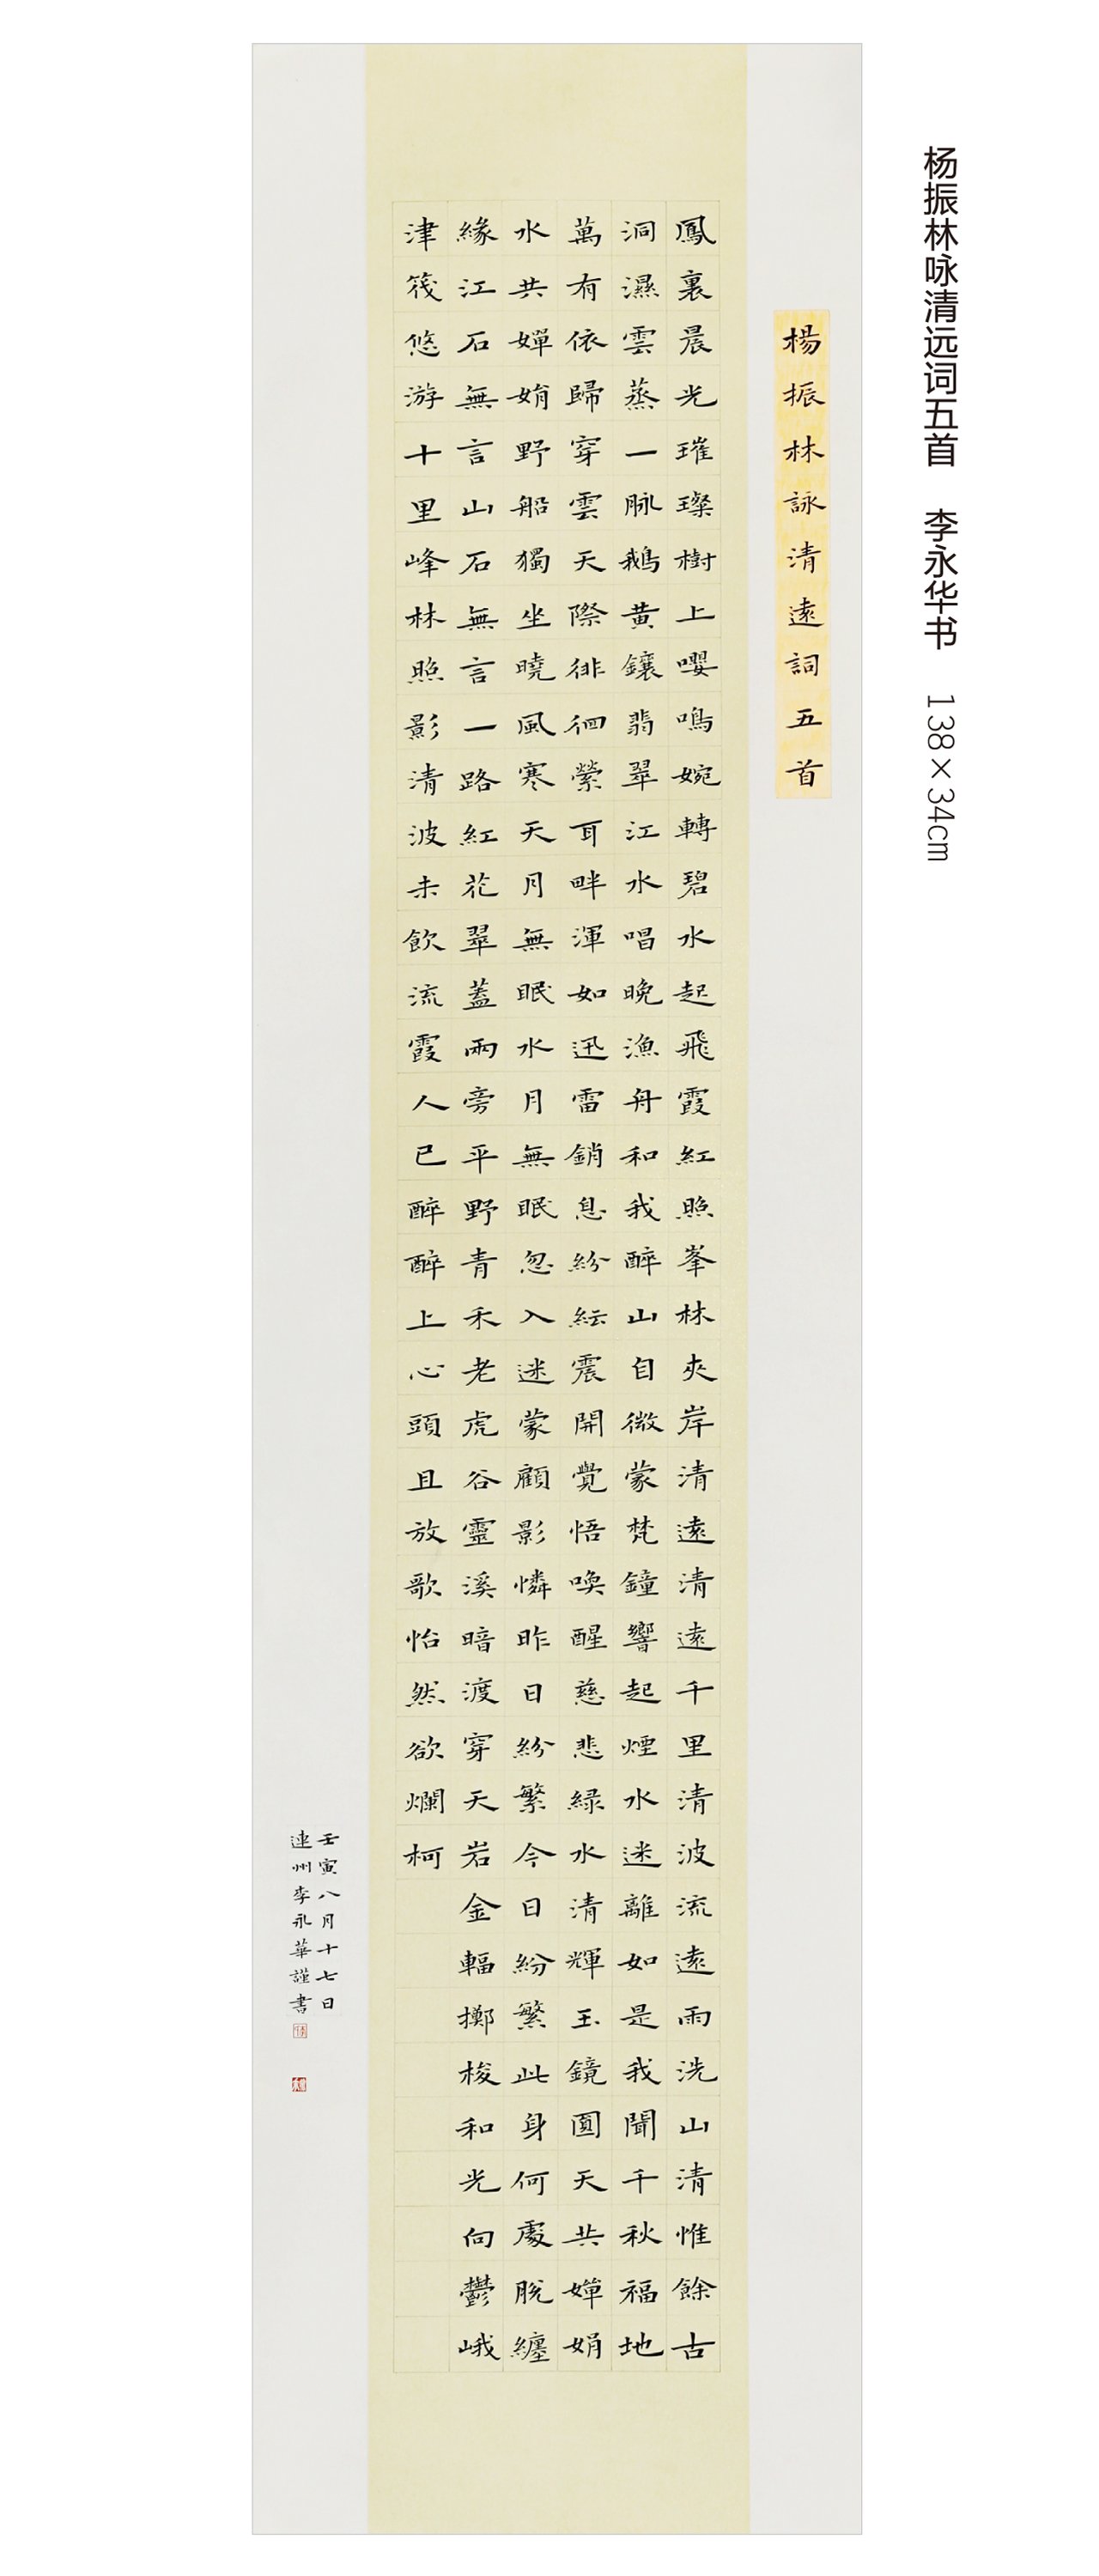 杨振林咏清远词五首 李永华书 138×34cm
楊振林詠清遠詞五首
鳳裏晨光璀璨樹上嚶鳴婉轉碧水起飛霞紅照峯林夾岸清遠清遠千里清波流遠雨洗山清惟餘古
洞濕雲蒸一脉鵝黄鑲翡翠江水唱晚漁舟和我醉山自微蒙梵鐘響起煙水迷離如是我聞千秋福地
萬有依歸穿雲天際徘徊縈耳畔渾如迅雷銷息紛紜震開覺悟喚醒慈悲緑水清輝玉鏡圓天共嬋娟
水共嬋娟野船獨坐曉風寒天月無眠水月無眠忽入迷蒙顧影憐昨日紛繁今日紛繁此身何處脫纏
緣江石無言山石無言一路紅花翠蓋兩旁平野青禾老虎谷靈溪暗渡穿天岩金輻擲梭和光向鬱峨
津筏悠游十里峰林照影清波未飲流霞人已醉醉上心頭且放歌怡然欲爛柯
壬寅八月十七日
連州李永華謹書